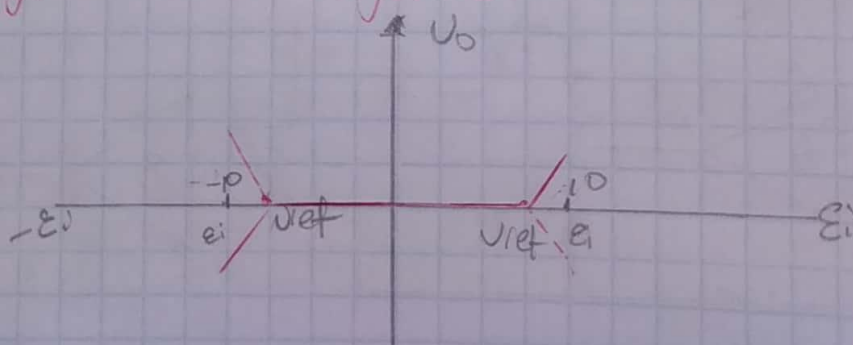 U0
-10
10
-Ei
Ei
Vref
Vref
Ei
Ei